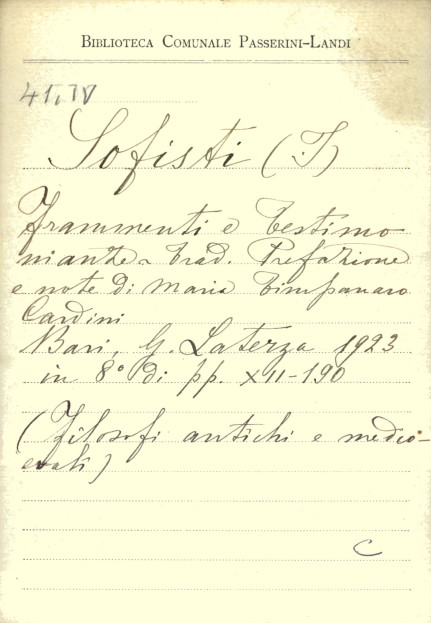 BIBLIOTECA COMUNALE PASSERINI-LANDI
41.IV
Sofisti (I)
Frammenti e testimo
nianze - trad. Prefazione
e note di Maria Timpanaro
Cardini
Bari, G. Laterza 1923
in 8° di pp. XII-190
(Filosofi antichi e medio-
evali)
C